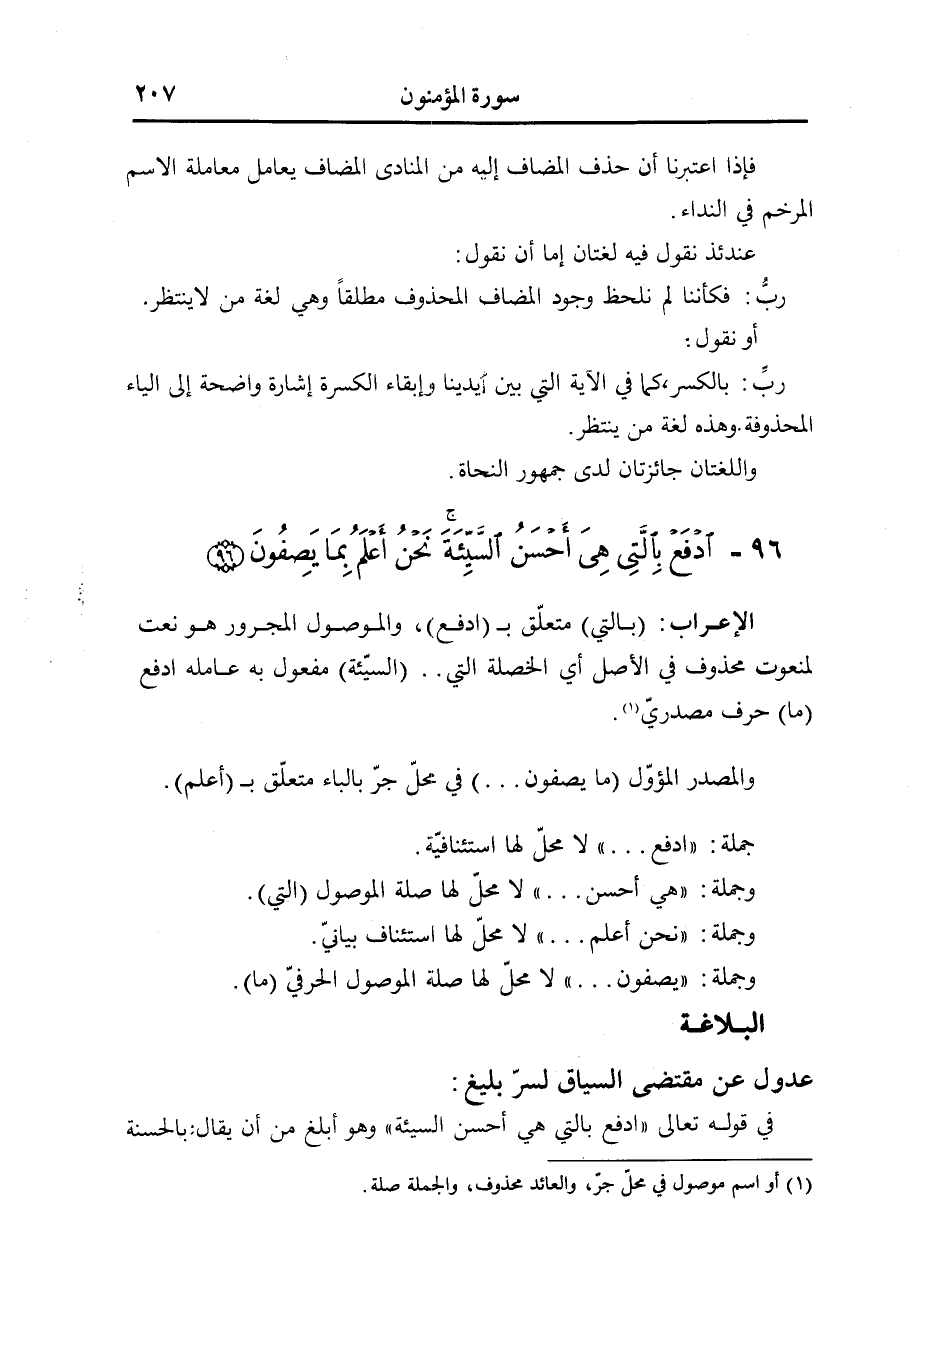 سورة المؤمنون ٢٠٧
فإذا اعتبرنا أن حذف المضاف إليه من المنادى المضاف يعامل معاملة الاسم
المرخم في النداء .
عندئذ نقول فيه لغتان إما أن نقول :
ربُّ : فكأننا لم نلحظ وجود المضاف المحذوف مطلقاً وهي لغة من لاينتظر .
أو نقول :
ربِّ : بالكسر ،كما في الآية التي بين أيدينا وإبقاء الكسرة إشارة واضحة إلى الياء
المحذوفة .وهذه لغة من ينتظر .
واللغتان جائزتان لدى جمهور النحاة .
٩٦ - ٱدْفَعْ بِٱلَّتِى هِىَ أَحْسَنُ ٱلسَّيِّئَةَ ۚ نَحْنُ أَعْلَمُ بِمَا يَصِفُونَ ﴿٩٦﴾
الإعـراب : (بـالتي) متعلّق بـ (ادفـع) ، والمـوصـول المجـرور هـو نعت
لمنعوت محذوف في الأصل أي الخصلة التي . . (السيّئة) مفعول به عـامله ادفع
(ما) حرف مصدريّ(١) .
والمصدر المؤوّل (ما يصفون . . .) في محلّ جرّ بالباء متعلّق بـ (أعلم) .
جملة : «ادفع . . .» لا محلّ لها استئنافيّة .
وجملة : «هي أحسن . . .» لا محلّ لها صلة الموصول (التي) .
وجملة : «نحن أعلم . . .» لا محلّ لها استئناف بيانيّ .
وجملة : «يصفون . . .» لا محلّ لها صلة الموصول الحرفيّ (ما) .
البـلاغـة
عدول عن مقتضى السياق لسرّ بليغ :
في قولـه تعالى «ادفع بالتي هي أحسن السيئة» وهو أبلغ من أن يقال :بالحسنة
(١) أو اسم موصول في محلّ جرّ ، والعائد محذوف ، والجملة صلة .